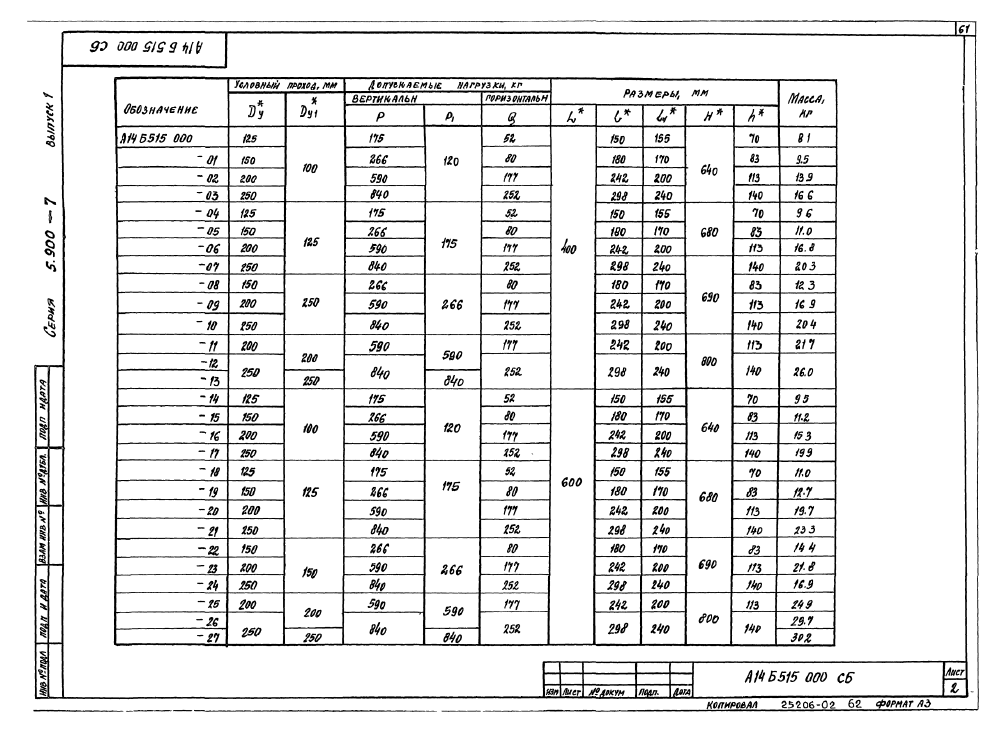 61
А14 Б 515 000 СБ
Выпуск 1
Серия 5.900 — 7
Обозначение | Условный проход, мм | Допускаемые нагрузки, кг | Размеры, мм | Масса, кг
Вертикальн | Горизонтальн
Dу* | Dу1* | P | P1 | Q | L* | l* | l1* | H* | h*
А14 Б515 000 | 125 | 100 | 175 | 120 | 52 | 400 | 150 | 155 | 640 | 70 | 8.1
- 01 | 150 | 266 | 80 | 180 | 170 | 83 | 9.5
- 02 | 200 | 590 | 177 | 242 | 200 | 113 | 13.9
- 03 | 250 | 840 | 252 | 298 | 240 | 140 | 16.6
- 04 | 125 | 125 | 175 | 175 | 52 | 150 | 155 | 680 | 70 | 9.6
- 05 | 150 | 266 | 80 | 180 | 170 | 83 | 11.0
- 06 | 200 | 590 | 177 | 242 | 200 | 113 | 16.8
- 07 | 250 | 840 | 252 | 298 | 240 | 690 | 140 | 20.3
- 08 | 150 | 250 | 266 | 266 | 80 | 180 | 170 | 83 | 12.3
- 09 | 200 | 590 | 177 | 242 | 200 | 113 | 16.9
- 10 | 250 | 840 | 252 | 298 | 240 | 140 | 20.4
- 11 | 200 | 200 | 590 | 590 | 177 | 242 | 200 | 800 | 113 | 21.7
- 12 | 250 | 840 | 252 | 298 | 240 | 140 | 26.0
- 13 | 250 | 840
- 14 | 125 | 100 | 175 | 120 | 52 | 600 | 150 | 155 | 640 | 70 | 9.5
- 15 | 150 | 266 | 80 | 180 | 170 | 83 | 11.2
- 16 | 200 | 590 | 177 | 242 | 200 | 113 | 15.3
- 17 | 250 | 840 | 252 | 298 | 240 | 140 | 19.9
- 18 | 125 | 125 | 175 | 175 | 52 | 150 | 155 | 680 | 70 | 11.0
- 19 | 150 | 266 | 80 | 180 | 170 | 83 | 12.7
- 20 | 200 | 590 | 177 | 242 | 200 | 113 | 19.7
- 21 | 250 | 840 | 252 | 298 | 240 | 140 | 23.3
- 22 | 150 | 150 | 266 | 266 | 80 | 180 | 170 | 690 | 83 | 14.4
- 23 | 200 | 590 | 177 | 242 | 200 | 113 | 21.8
- 24 | 250 | 840 | 252 | 298 | 240 | 140 | 16.9
- 25 | 200 | 200 | 590 | 590 | 177 | 242 | 200 | 800 | 113 | 24.9
- 26 | 250 | 840 | 252 | 298 | 240 | 140 | 29.7
- 27 | 250 | 840 | 30.2
Инв № подл | Подп и дата | Взам инв № | Инв № дубл. | Подп и дата
Изм | Лист | № докум | Подп. | Дата
А14 Б515 000 СБ
Лист
2
Копировал 25206-02 62 Формат А3